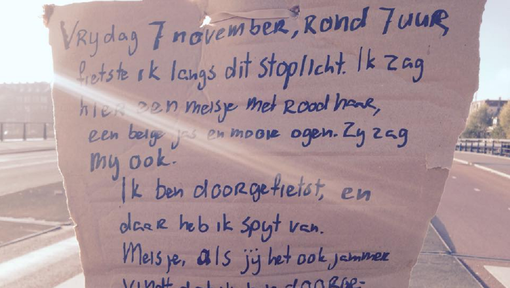 Vrydag 7 november, Rond 7 uur
fietste ik langs dit stoplicht. Ik zag
hier een meisje met Rood haar,
een beige jas en mooie ogen. Zy zag
my ook.
Ik ben doorgefietst, en
daar heb ik spyt van.
Meisje, als jÿ het ook jammer
vindt dat ik ben doorge-